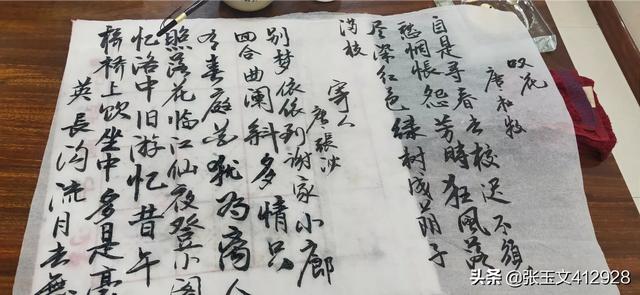 叹花
唐 杜牧
自是寻春去校迟不须
愁惆怅怨芳時狂风落
尽深红色绿树成荫子
满枝
寄人
唐 張泌
别梦依依到谢家小廊
四合曲阑斜多情只
有春庭月犹为离人
照落花临江仙夜登小阁
忆洛中旧游忆昔午
桥桥上饮坐中多是豪
英長沟流月去無
头条 @张玉文412928